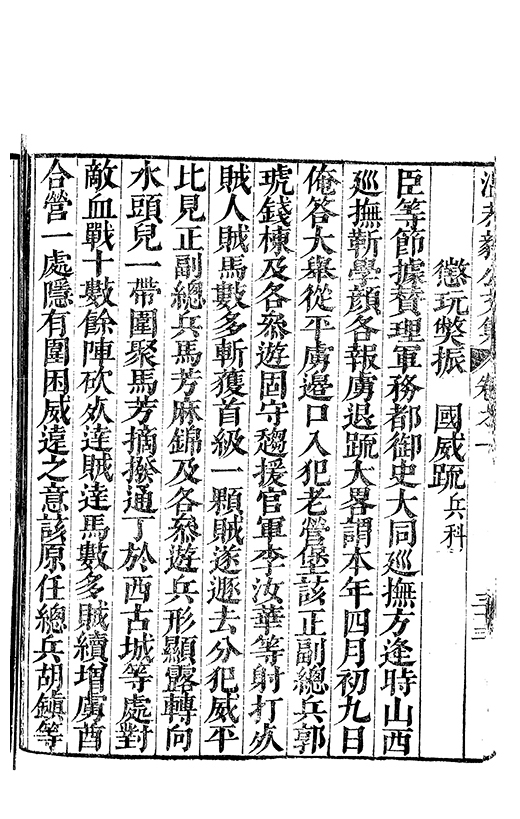 溫恭毅公文集
卷之一
懲玩獎振　國威疏兵科
臣等節據贊理軍務都御史大同廵撫方逢時山西
廵撫靳學顏各報虜退疏大畧謂本年四月初九日
俺答大舉從平虜邊口入犯老營堡該正副總兵郭
琥錢棟及各叅遊固守趨援官軍李汝華等射打㱙
賊人賊馬數多斬獲首級一顆賊遂遯去分犯威平
比見正副總兵馬芳麻錦及各叅遊兵形顯露轉向
水頭兒一帶圍聚馬芳摘撥通丁於西古城等處對
敵血戰十數餘陣砍㱙達賊達馬數多賊續增虜酋
合營一處隱有圍困威遠之意該原任總兵胡鎮等